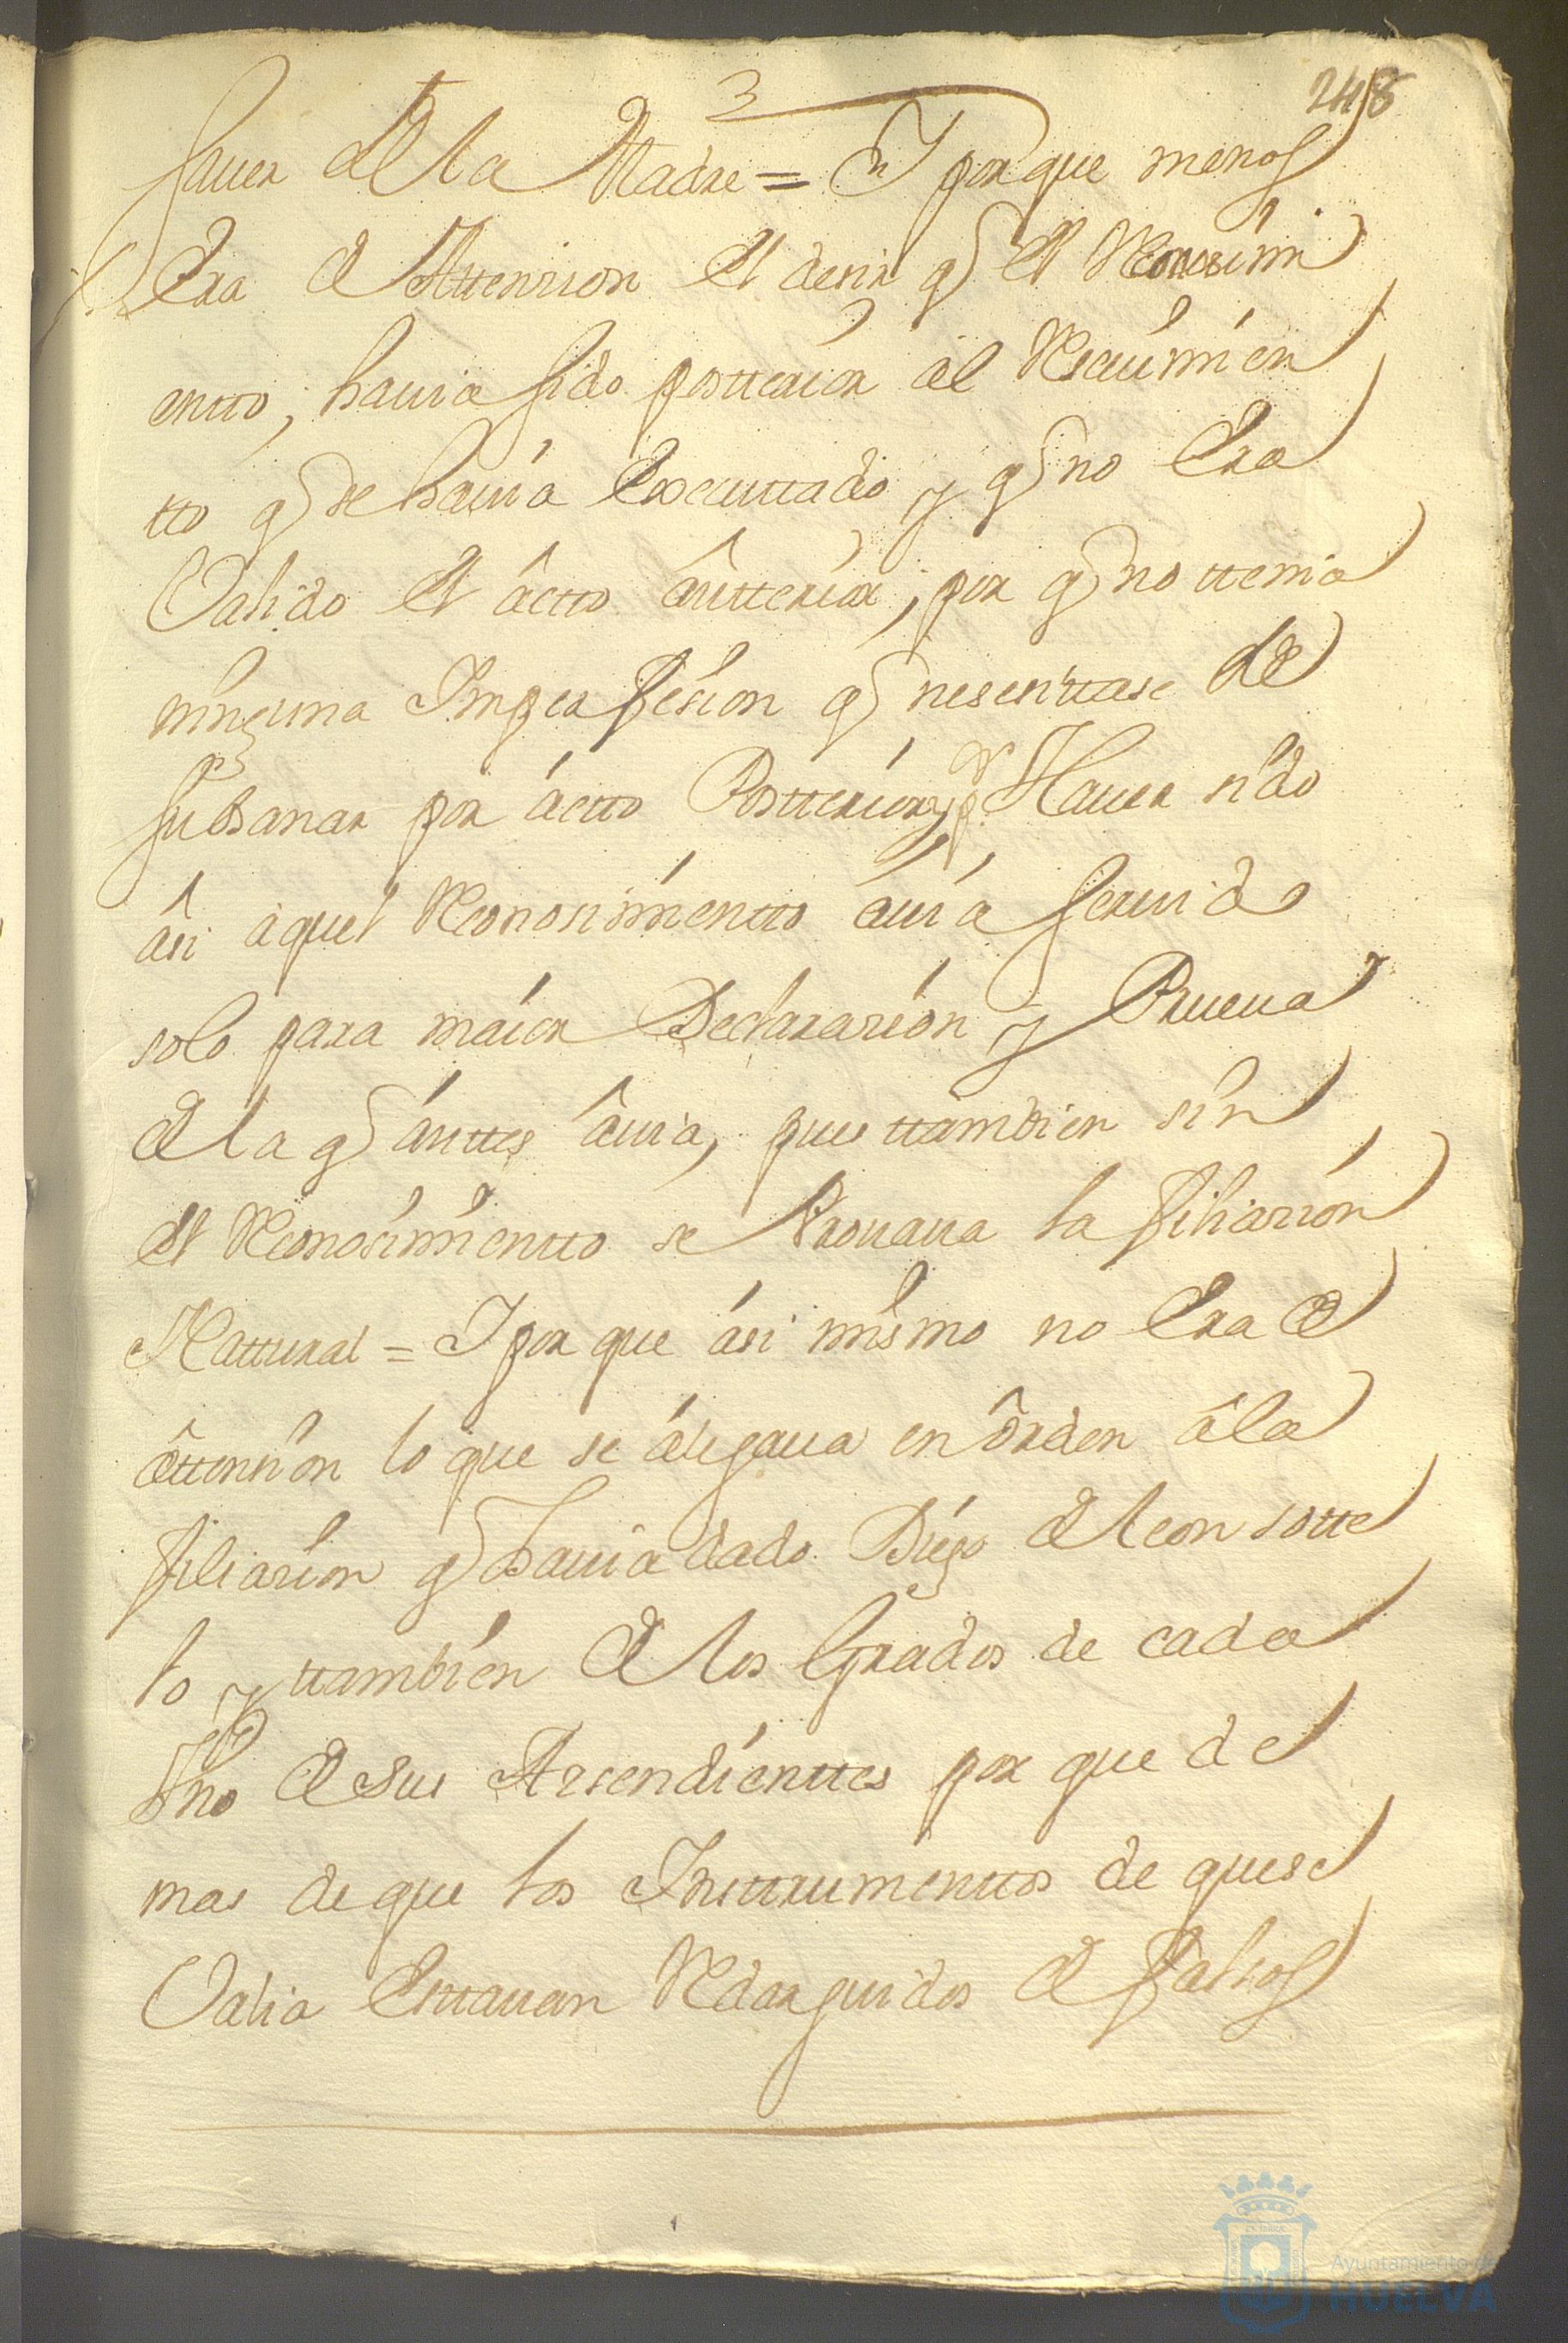 3
248
fauer de la Madre = Y porque menos
Era de Attension el desir q el Reconosimi
entto, hauia sido postterior al Resiuimien
tto q se hauia Executtado y q no Era
Valido el actto antterior, por q no ttenia
ninguna Imperfesion q nesesittase de
subsanar por actto Postterior, y Hauer sido
asi aquel Reconosimientto auia seruido
solo para maior Declarasion y Prueua
de la q anttes auia, pues ttambien sin
el Reconosimientto se Prouaua la filiasion
Nattural = Y por que asi mismo no Era de
attension lo que se alegaua en orden a la
filiasion q hauia dado Diego de leon sotte
lo y ttambien de los Grados de cada
Vno de sus Assendienttes por que de
mas de que los Insttrumenttos de que se
Valia Esttauan Redarguidos de falsos
Ayuntamiento de
HUELVA